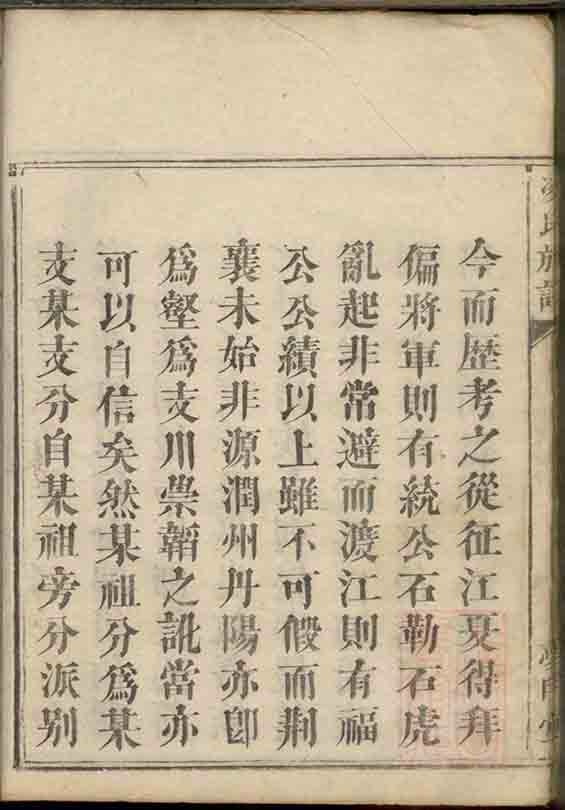 今而歴考之從征江夏得拜
偏將軍則有統公石勒石虎
亂起非常避而渡江則有福
公公績以上雖不可假而荆
襄未始非源潤州丹陽亦卽
爲壑爲支川祟韜之訛當亦
可以自信矣然某祖分爲某
支某支分自某祖旁分派别
氏族